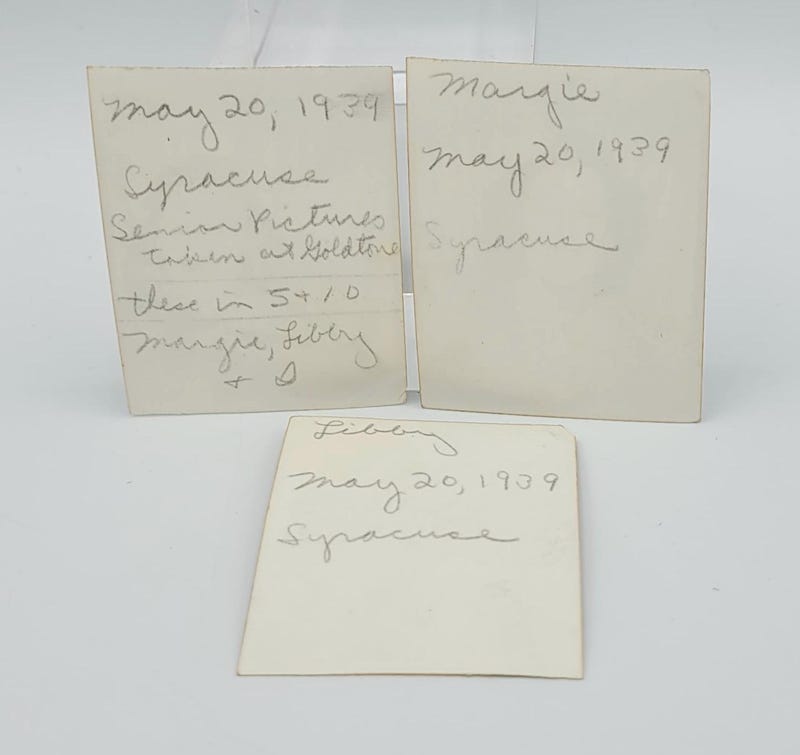 May 20, 1939
Syracuse
Senior Pictures
taken at Goldtone
these in 5 + 10
Margie, Libby
+ I
Margie
May 20, 1939
Syracuse
Libby
May 20, 1939
Syracuse